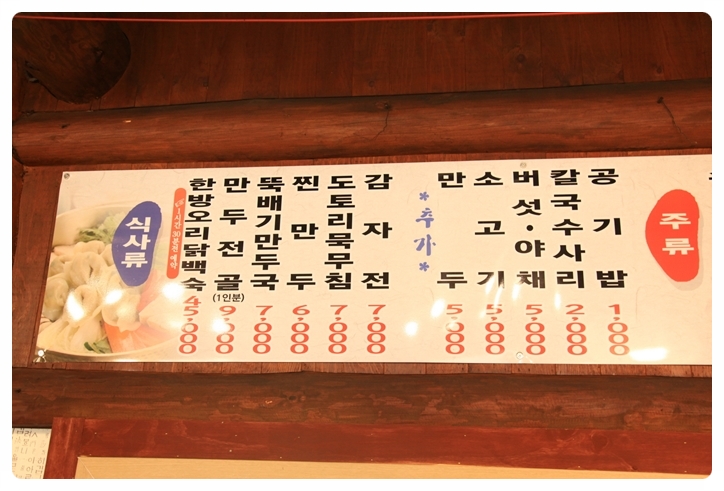 식사류
한방오리닭백숙 45,000
만두전골 (1인분) 9,000
뚝배기만두국 7,000
찐만두 6,000
도토리묵무침 7,000
감자전 7,000
*추가*
만두 5,000
소고기 5,000
버섯·야채 5,000
칼국수사리 2,000
공기밥 1,000
주류